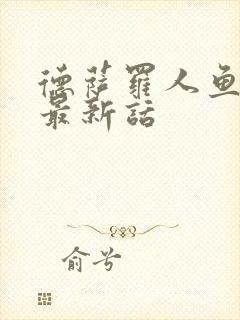 德萨罗人鱼
最新話
俞兮